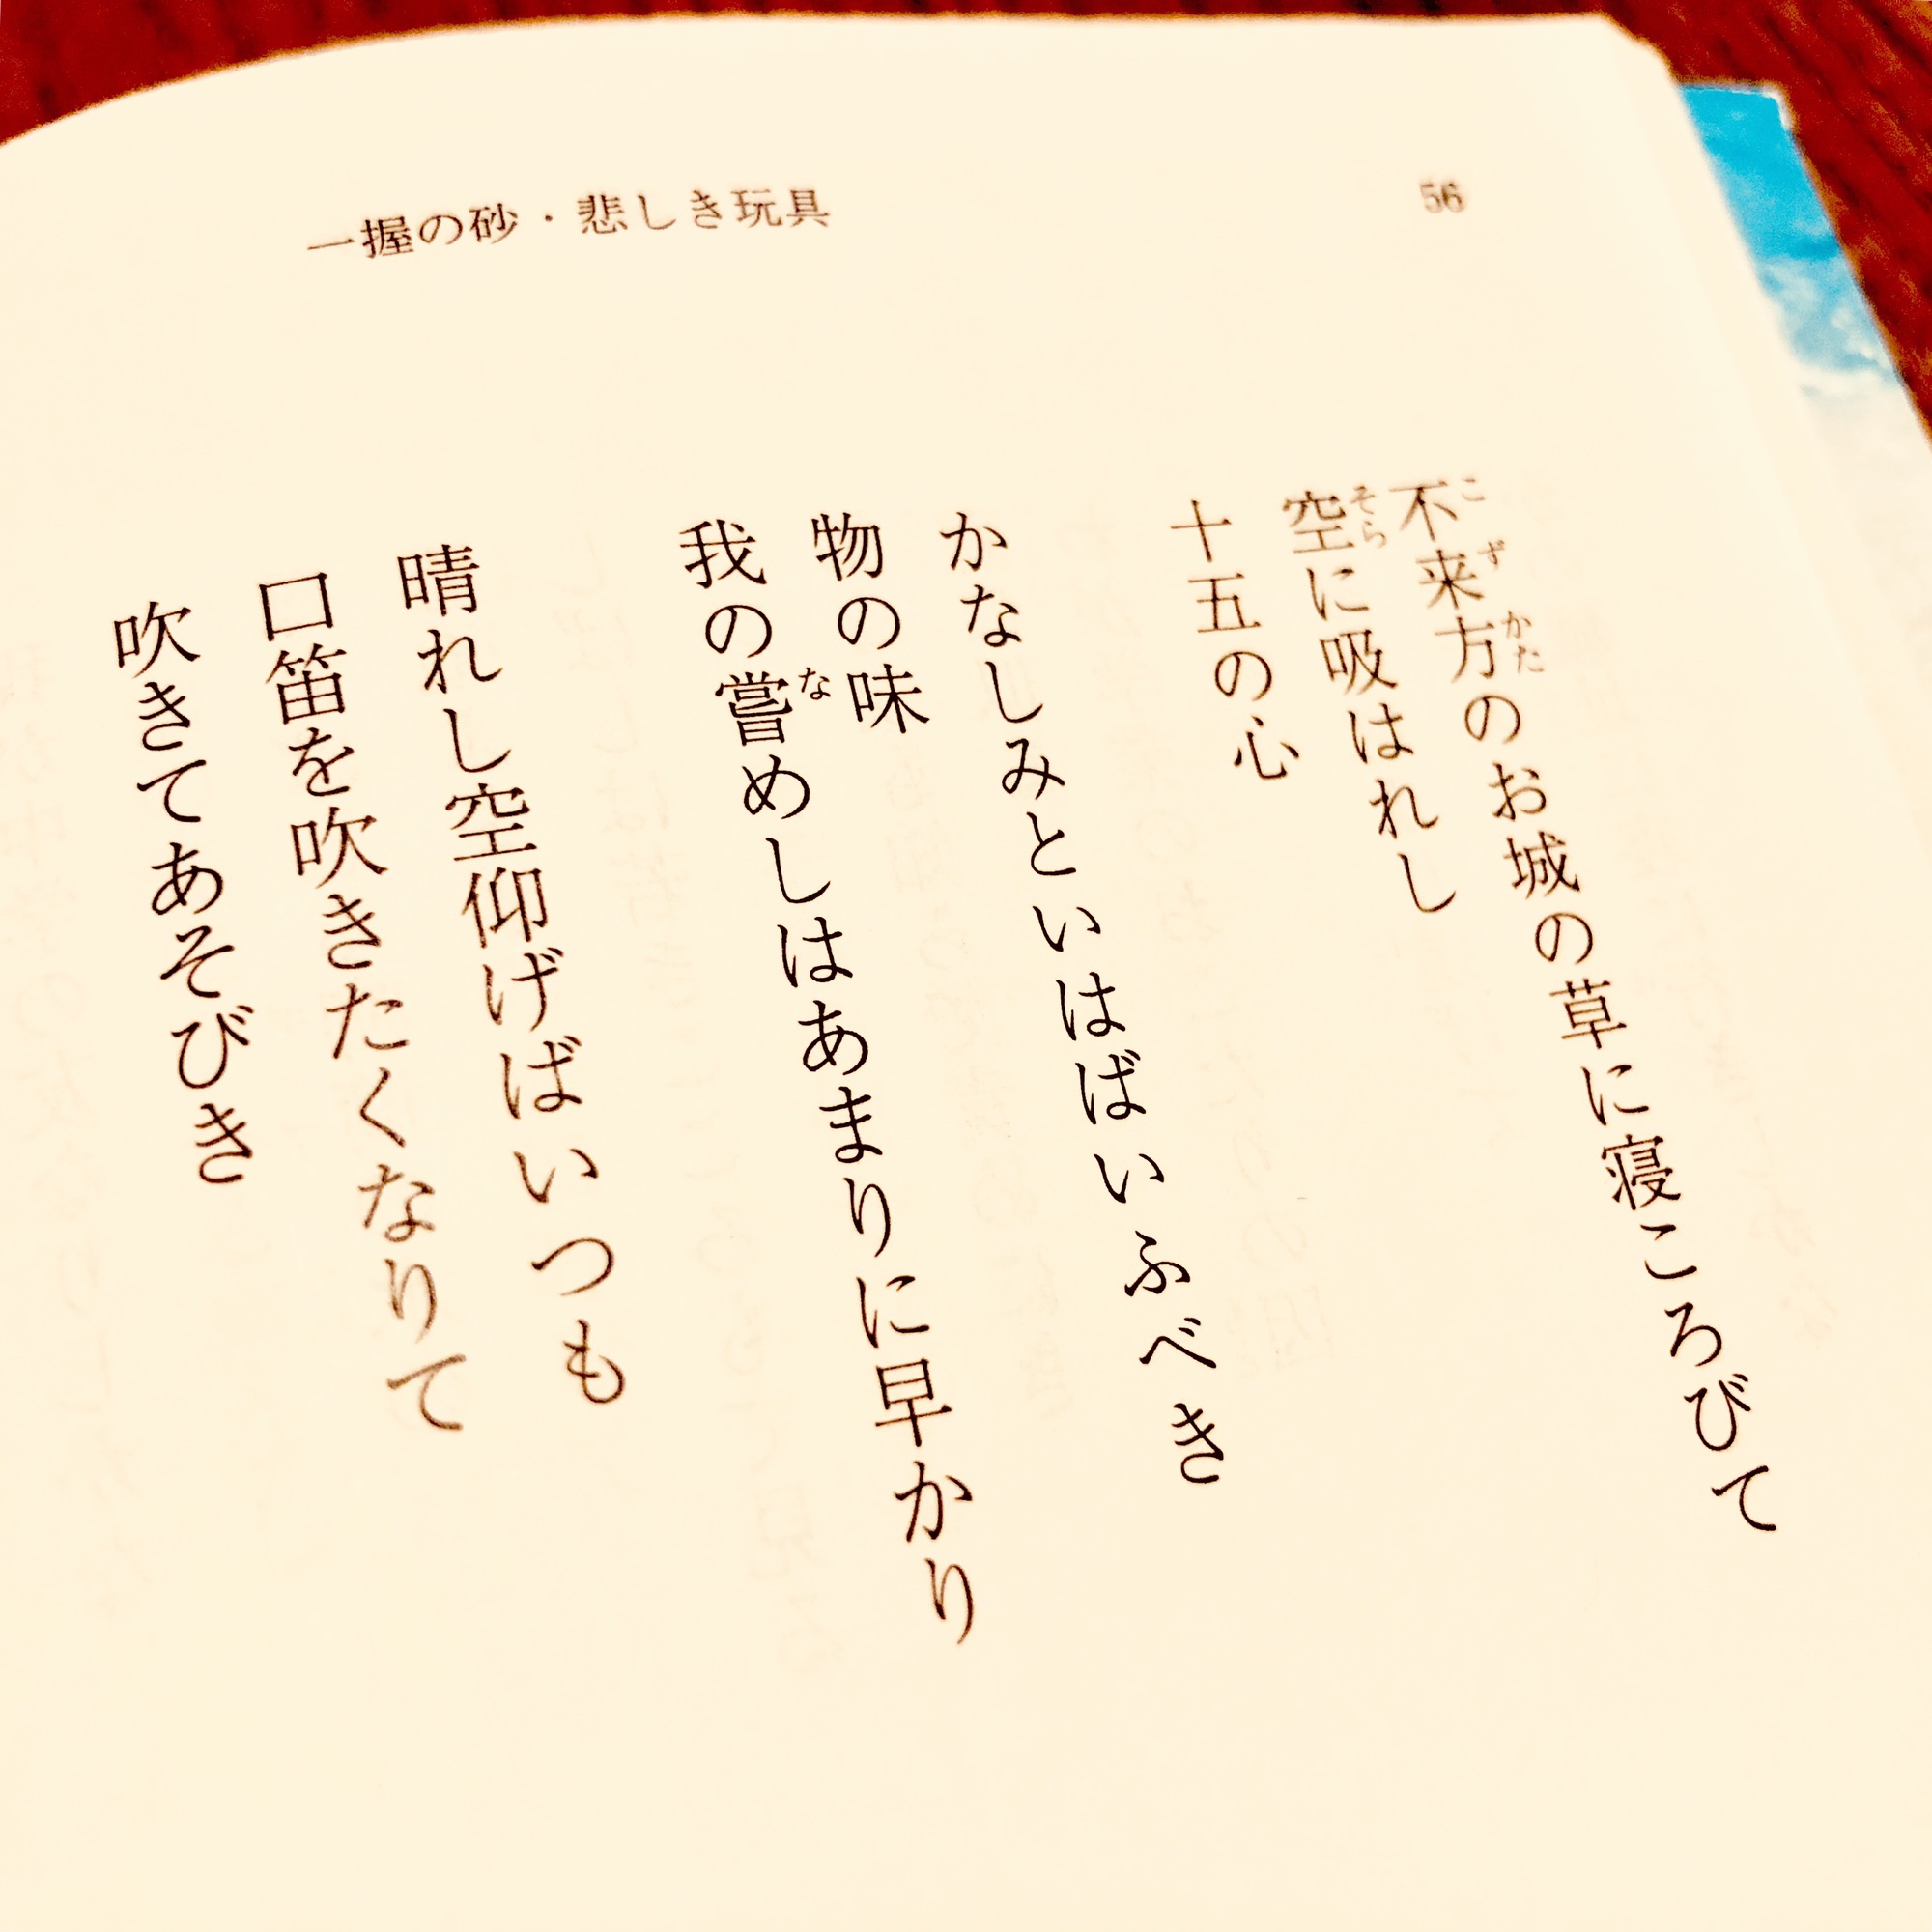 一握の砂・悲しき玩具
56
不来方のお城の草に寝ころびて
こずかた
空に吸はれし
そら
十五の心
かなしみといはばいふべき
物の味
我の嘗めしはあまりに早かり
な
晴れし空仰げばいつも
口笛を吹きたくなりて
吹きてあそびき